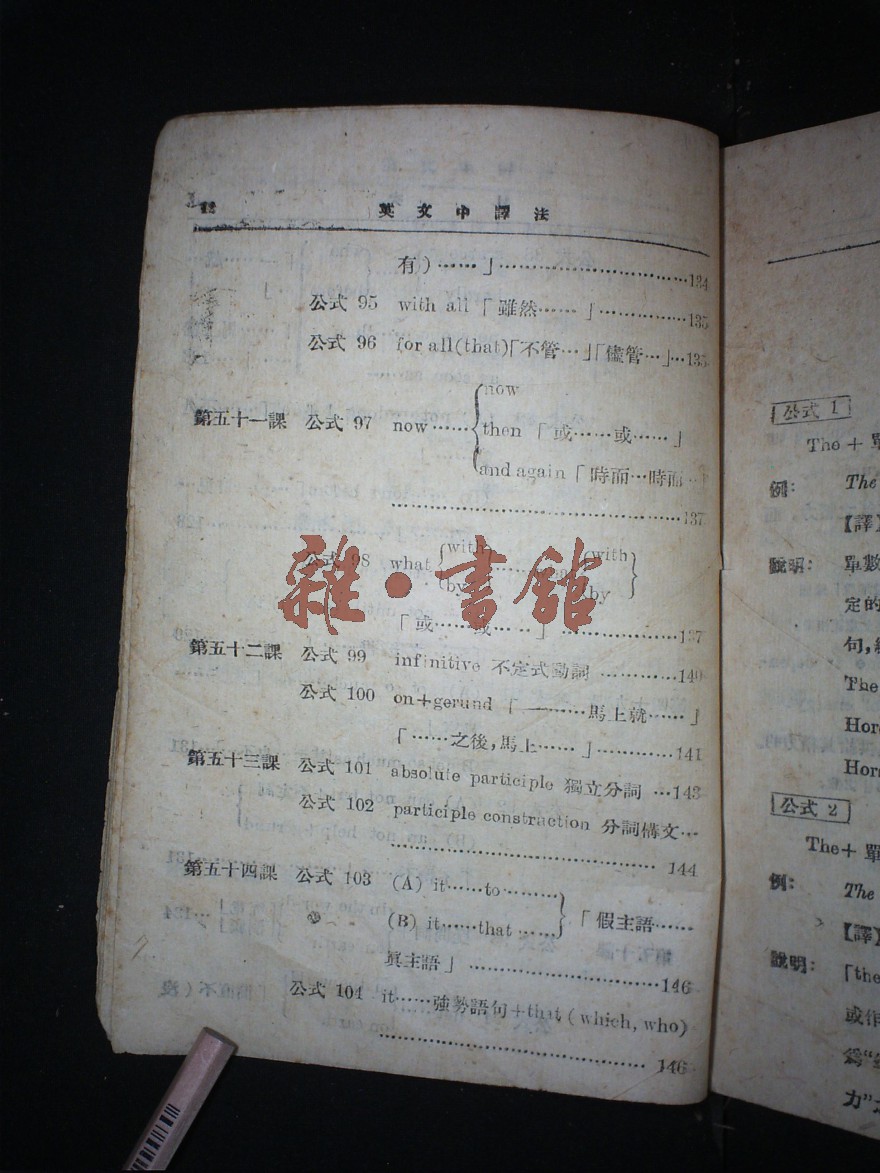 12
英文中譯法
有）……」……………………134
公式 95 with all「雖然……」……………135
公式 96 for all(that)「不管…」「儘管…」…135
now
第五十一課 公式 97 now……then「或……或……」
and again「時面…時而…」
……………………………………137
公式 98 what with by ……… with by
「或……或……」……………137
第五十二課 公式 99 infinitive 不定式動詞…………140
公式 100 on+gerund「一………馬上就……」
「……之後，馬上……」…………141
第五十三課 公式 101 absolute participle 獨立分詞…143
公式 102 participle construction 分詞構文…
……………………………… 144
第五十四課 公式 103 (A) it……to………
(B) it……that……「假主語……
眞主語」……………………146
公式 104 it……強勢語句+that (which, who)
……………………………… 146
雜·書館
公式 1
The + 單
例： The
【譯】
說明： 單數
定的
句，
The
Hor
Hor
公式 2
The+ 單
例： The
【譯】
說明： 「the
或作
爲“
力”